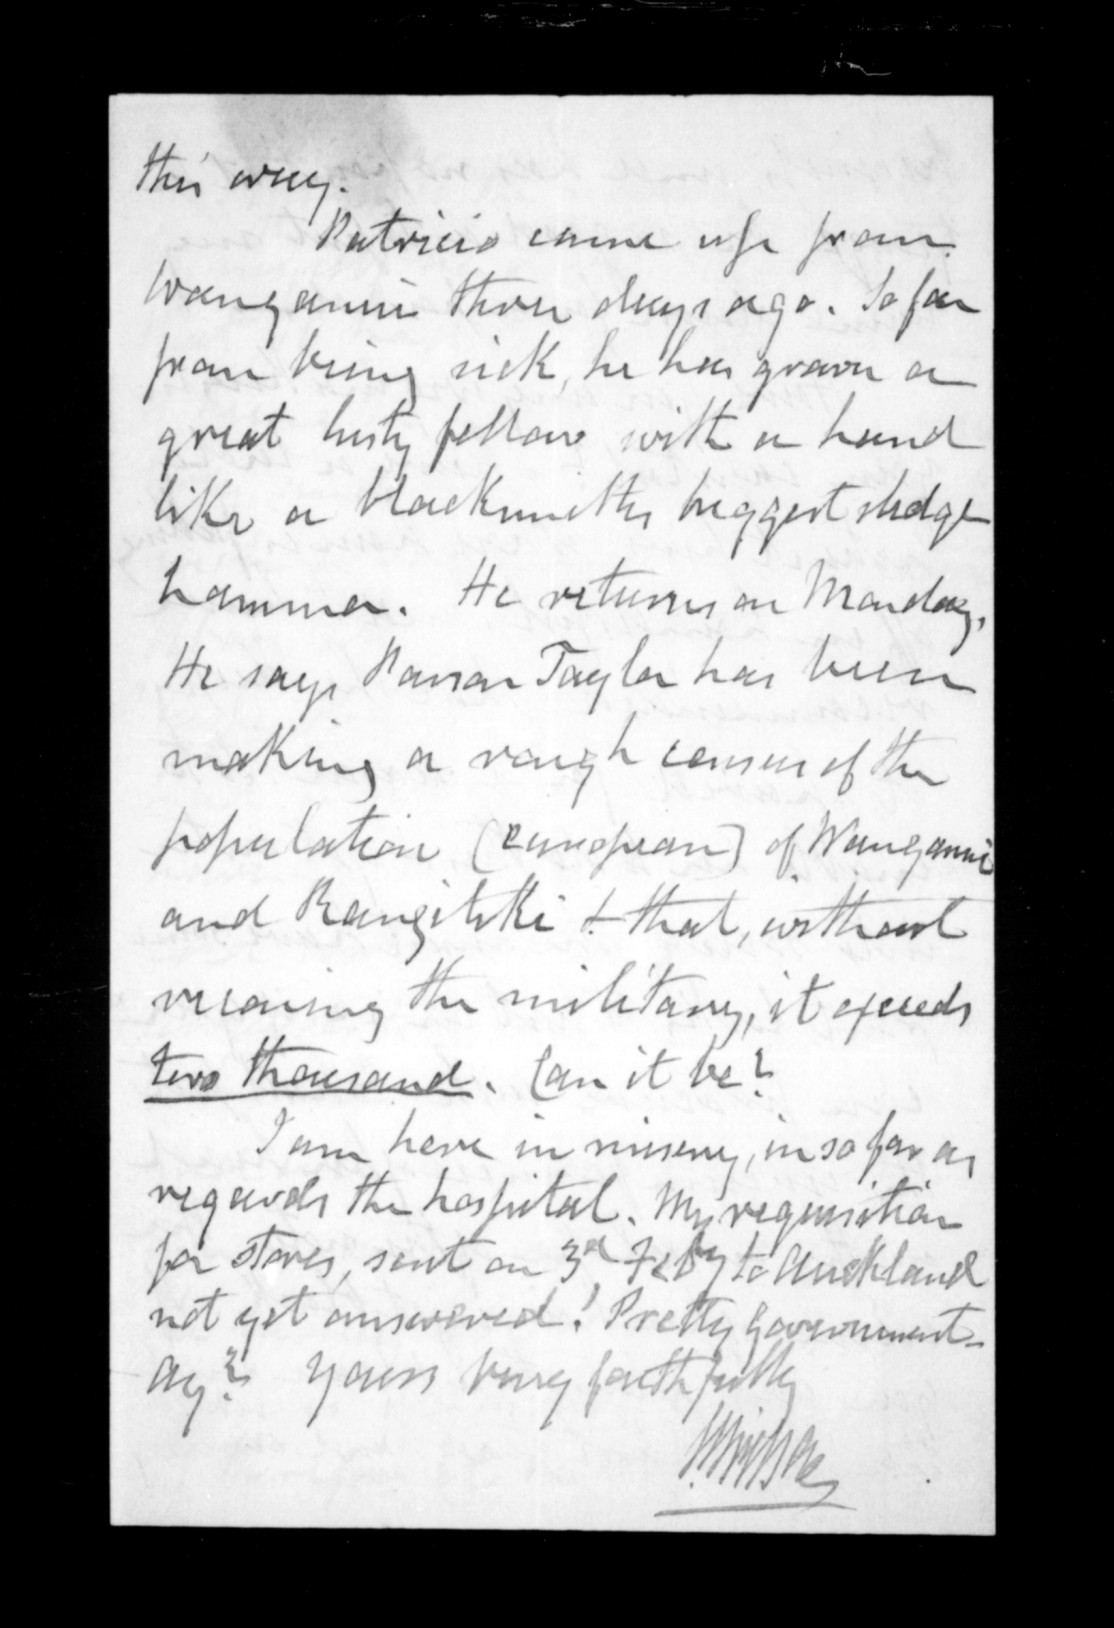 this way.
Patricio came up from
Wanganui three days ago. So far
from being sick, he has grown a
great lusty fellow with a hand
like a blacksmiths biggest sledge
hammer. He returns on Monday.
He says Parson Taylor has been
making a rough census of the
population (European) of Wanganui
and Rangitiki & that, without
the military, it exceeds
two thousand. Can it be?
I am here in misery, in so far as
regards the hospital. My requisition
for stores, sent on 3rd Feby to Auckland
not yet answered! Pretty government
Ay? Yours very faithfully